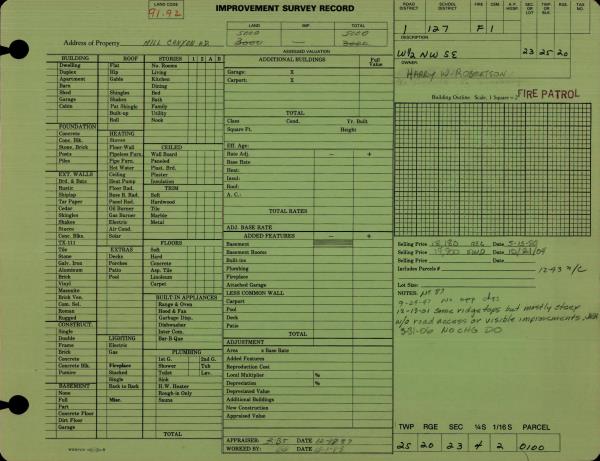 LAND CODE
91.92
IMPROVEMENT SURVEY RECORD
LAND IMP. TOTAL
5000 5000
3000 3000
Address of Property HILL CANYON RD.
ASSESSED VALUATION
ROAD DISTRICT SCHOOL DISTRICT FIRE CEM. HOSP. SEC. OR LOT TWP. OR BLK. RGE. TAX NO.
1 127 F1
DESCRIPTION
W½ NW SE 23 25 20
OWNER
HARRY W. ROBERTSON
Building Outline Scale, 1 Square =
FIRE PATROL
BUILDING ROOF STORIES 1 2 A B
Dwelling Flat No. Rooms
Duplex Hip Living
Apartment Gable Kitchen
Barn Dining
Shed Shingles Bed
Garage Shakes Bath
Cabin Pat Shingle Family
Built-up Utility
Roll Nook
FOUNDATION
Concrete HEATING
Conc. Blk. Stoves
Stone, Brick Floor-Wall CEILED
Posts Pipeless Furn. Wall Board
Piles Pipe Furn. Paneled
Hot Water Plast. Brd.
EXT. WALLS Ceiling Plaster
Brd. & Bats Heat Pump Insulation
Rustic Floor Rad. TRIM
Shiplap Base B. Rad. Soft
Tar Paper Panel Rad. Hardwood
Cedar Oil Burner Tile
Shingles Gas Burner Marble
Shakes Electric Metal
Stucco Air Cond.
Conc. Blks. Solar
TX-111 FLOORS
Tile EXTRAS Soft
Stone Decks Hard
Galv. Iron Porches Concrete
Aluminum Patio Asp. Tile
Brick Pool Linoleum
Vinyl Carpet
Masonite
Brick Ven. BUILT IN APPLIANCES
Com. Sel. Range & Oven
Roman Hood & Fan
Rugged Garbage Disp.
CONSTRUCT. Dishwasher
Single Inter Com.
Double LIGHTING Bar-B-Que
Frame Electric
Brick Gas PLUMBING
Concrete 1st G. 2nd G.
Concrete Blk. Fireplace Shower Tub
Pumice Stacked Toilet Lav.
Single Sink
BASEMENT Back to Back H.W. Heater
None Rough-in Only
Full Misc. Sauna
Part
Concrete Floor
Dirt Floor
Garage
TOTAL
ADDITIONAL BUILDINGS Full Value
Garage: X
Carport: X
TOTAL
Class Cond. Yr. Built
Square Ft. Height
Eff. Age:
Rate Adj. − +
Base Rate
Heat:
Insul:
Roof:
A. C.:
TOTAL RATES
ADJ. BASE RATE
ADDED FEATURES − +
Basement
Basement Rooms
Built-ins
Plumbing
Fireplace
Attached Garage
LESS COMMON WALL
Carport
Pool
Deck
Patio
TOTAL
ADJUSTMENT
Area x Base Rate
Added Features
Reproduction Cost
Local Multiplier %
Depreciation %
Depreciated Value
Additional Buildings
New Construction
Appraised Value
APPRAISER: DATE
WORKED BY: DATE
Selling Price Date
Selling Price Date 10/21/04
Selling Price Date
Includes Parcels # 12-93 N/C
Lot Size:
NOTES:
No chg
12-13-01 Some ridge tops but mostly steep
w/o road access or visible improvements.
3-31-06 NO CHG DO
TWP RGE SEC ¼S 1/16S PARCEL
25 20 23 4 2 0100